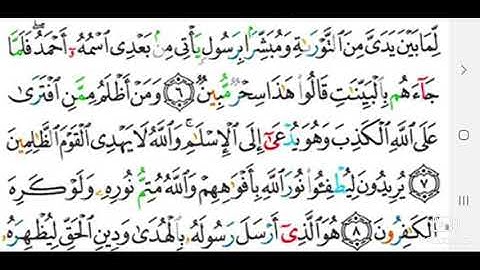 لِّمَا بَيْنَ يَدَيَّ مِنَ ٱلتَّوْرَىٰةِ وَمُبَشِّرًۢا بِرَسُولٍ يَأْتِى مِنۢ بَعْدِى ٱسْمُهُۥٓ أَحْمَدُ ۖ فَلَمَّا
جَآءَهُم بِٱلْبَيِّنَٰتِ قَالُوا۟ هَٰذَا سِحْرٌ مُّبِينٌ ٦ وَمَنْ أَظْلَمُ مِمَّنِ ٱفْتَرَىٰ
عَلَى ٱللَّهِ ٱلْكَذِبَ وَهُوَ يُدْعَىٰٓ إِلَى ٱلْإِسْلَٰمِ ۚ وَٱللَّهُ لَا يَهْدِى ٱلْقَوْمَ ٱلظَّٰلِمِينَ
٧ يُرِيدُونَ لِيُطْفِـُٔوا۟ نُورَ ٱللَّهِ بِأَفْوَٰهِهِمْ وَٱللَّهُ مُتِمُّ نُورِهِۦ وَلَوْ كَرِهَ
ٱلْكَٰفِرُونَ ٨ هُوَ ٱلَّذِىٓ أَرْسَلَ رَسُولَهُۥ بِٱلْهُدَىٰ وَدِينِ ٱلْحَقِّ لِيُظْهِرَهُۥ